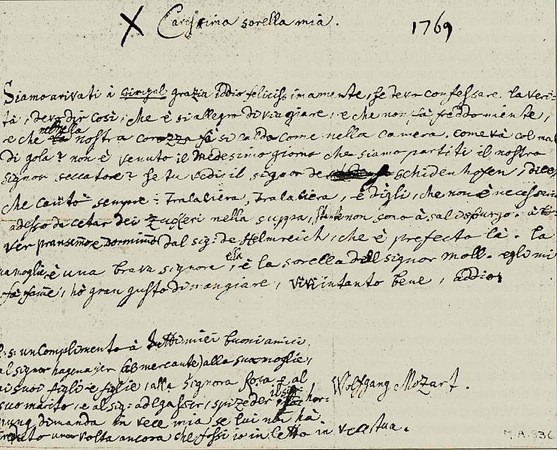 X Carissima sorella mia. 1769
Siamo arivati à Wirgel grazia iddio feliciss imamente, se devo confessare la veri-
tà, devo dir cosi, che è si allegro di viagiare, e che non fà freddo niente,
e che nella nostra carozza fà si caldo come nella camera. come và col mal
di gola? non è venuto il medesimo giorno che siamo partiti il nostro
signor seccatore? se tu vedi il signor de Schidenhofen, dice
che canto sempre: Tralaliera, Tralaliera, e digli, che non è necessario
adesso di metar dei zuccheri nella suppa, non sono à salisburgo. à
dal sig: de Helmreich, che è prefecto là. la
sua moglie è una brava signora, ella è la sorella del signor Moll. egli mi
fà fame, hò gran gusto di mangiare, vivi intanto bene, addio.
P:s: un complimento à tutti miei buoni amici,
al signor hagenauer (il mercante) alla sua moglie,
ai suoi figli e figlie, alla signora Rosa, e al
suo marito, e al sig: adelgasser, e spizeder,
Wolfgang Mozart.
dimanda in vece mia se lui non hà
creduto una volta ancora che fossi io in letto in vece tua.
M.A. 836